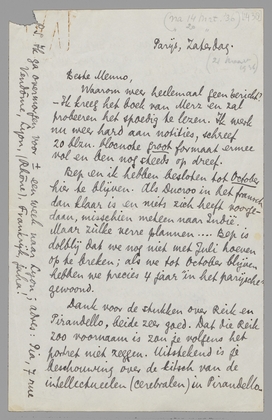 Parijs, Zaterdag.
Beste Menno,
Waarom weer heelemaal geen bericht?
– Ik kreeg het boek van Merz en zal
probeeren het spoedig te lezen. Ik werk
nu weer hard aan notities, schreef
20 blzn. blocnote groot formaat ermee
vol en ben nog steeds op dreef.
Bep en ik hebben besloten tot October
hier te blijven. Als Ducroo in het fransch
dan klaar is en niets zich heeft voorge-
daan, misschien meteen naar Indië.
Maar zùlke verre plannen .... Bep is
dolblij dat we nog niet met Juli hoeven
op te breken; als we tot October blijven
hebben we precies 4 jaar in het parijsche
gewoond.
Dank voor de stukken over Reik en
Pirandello, beide zeer goed. Dat die Reik
zoo voornaam is zou je volgens het
portret niet zeggen. Uitstekend is je
beschouwing over de kitsch van de
intellectueelen (cerebralen) in Pirandello
Ik ga overmorgen voor ± een week naar Lyon; adres: 9 rue
Vendôme, Lyon, (Rhône), Frankrijk,